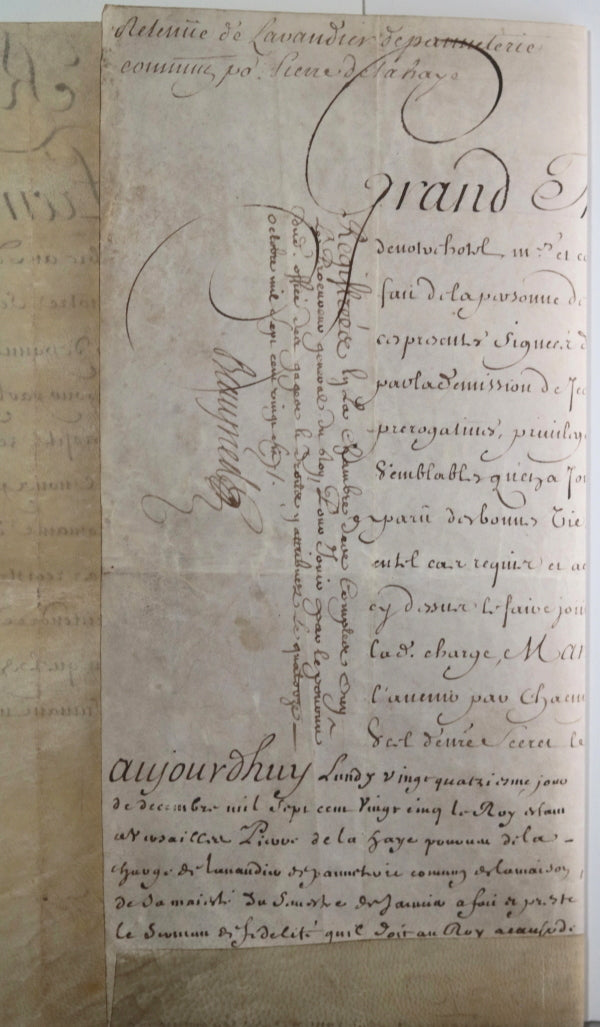 Retenüe de Lavandier depanneterie
commune po.r Pierre delahaye
Grand
denotrehotel, m.es et
fait delapersonne de
ces presentes signeés
parladémission de
prerogatives, privileg
semblables
apparü desbonnes vie
entel cas requis et
cy dessus lefaire joui
lad. charge, Man
l'avenir par Chacun
Scel
Registrées en La Chambre des Comptes Ouy
le Procureur general du Roy, Pour Jouir par lepourvu
dud. office des gages et droits y attribuez Le quatorze
octobre mil sept cent vingt
aujourdhuy Lundy vingt quatriesme jour
de decembre mil sept cent vingt cinq le Roy estant
aversailles Pierre de la haye pourvu dela
charge de lavandier depanneterie commun delamaison
de sa majesté du Semestre de Janvier a fait et presté
le Serment de fidelité quil doit au Roy acausede